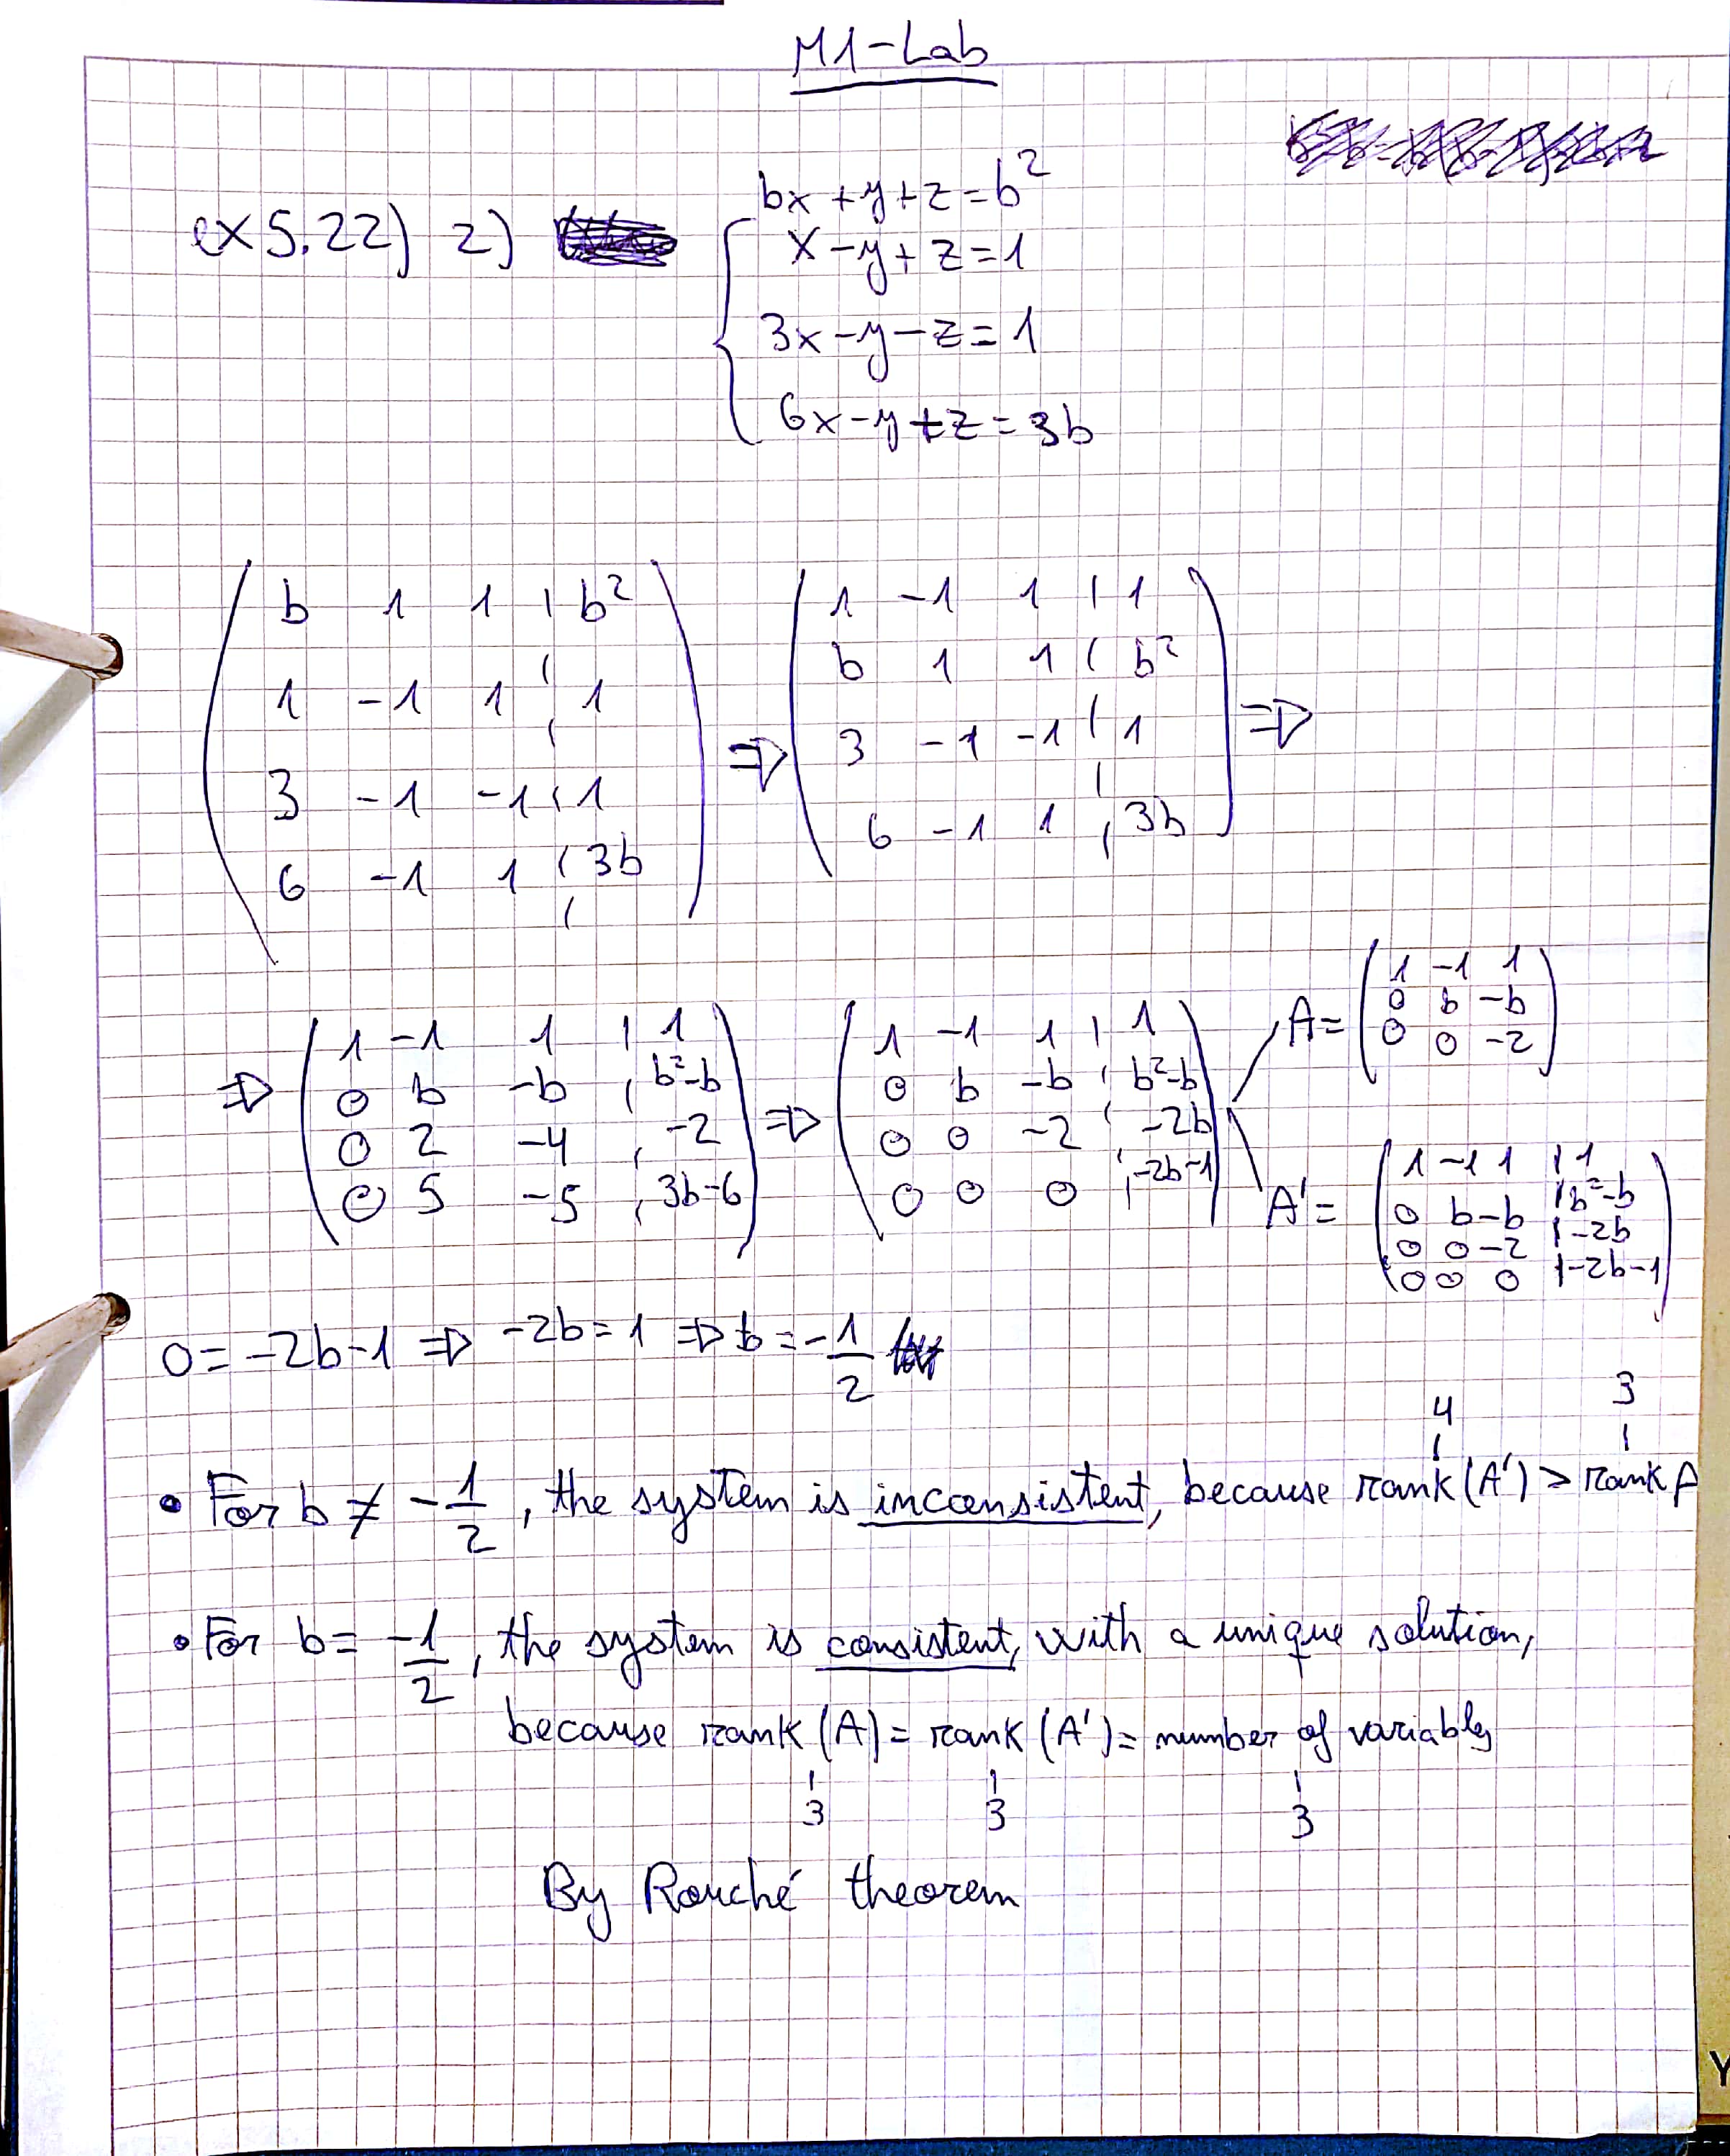 M1-Lab
ex 5.22) 2)
bx + y + z = b²
x - y + z = 1
3x - y - z = 1
6x - y + z = 3b
b 1 1 | b²
1 -1 1 | 1
3 -1 -1 | 1
6 -1 1 | 3b
⇒
1 -1 1 | 1
b 1 1 | b²
3 -1 -1 | 1
6 -1 1 | 3b
⇒
⇒
1 -1 1 | 1
0 b -b | b²-b
0 2 -4 | -2
0 5 -5 | 3b-6
⇒
1 -1 1 | 1
0 b -b | b²-b
0 0 -2 | -2b
0 0 0 | -2b-1
A =
1 -1 1
0 b -b
0 0 -2
A' =
1 -1 1 | 1
0 b -b | b²-b
0 0 -2 | -2b
0 0 0 | -2b-1
0 = -2b-1 ⇒ -2b = 1 ⇒ b = -1/2
4 3
• For b ≠ -1/2, the system is inconsistent, because rank (A') > rank A
• For b = -1/2, the system is consistent, with a unique solution,
because rank (A) = rank (A') = number of variables
3 3 3
By Rouché theorem
Y